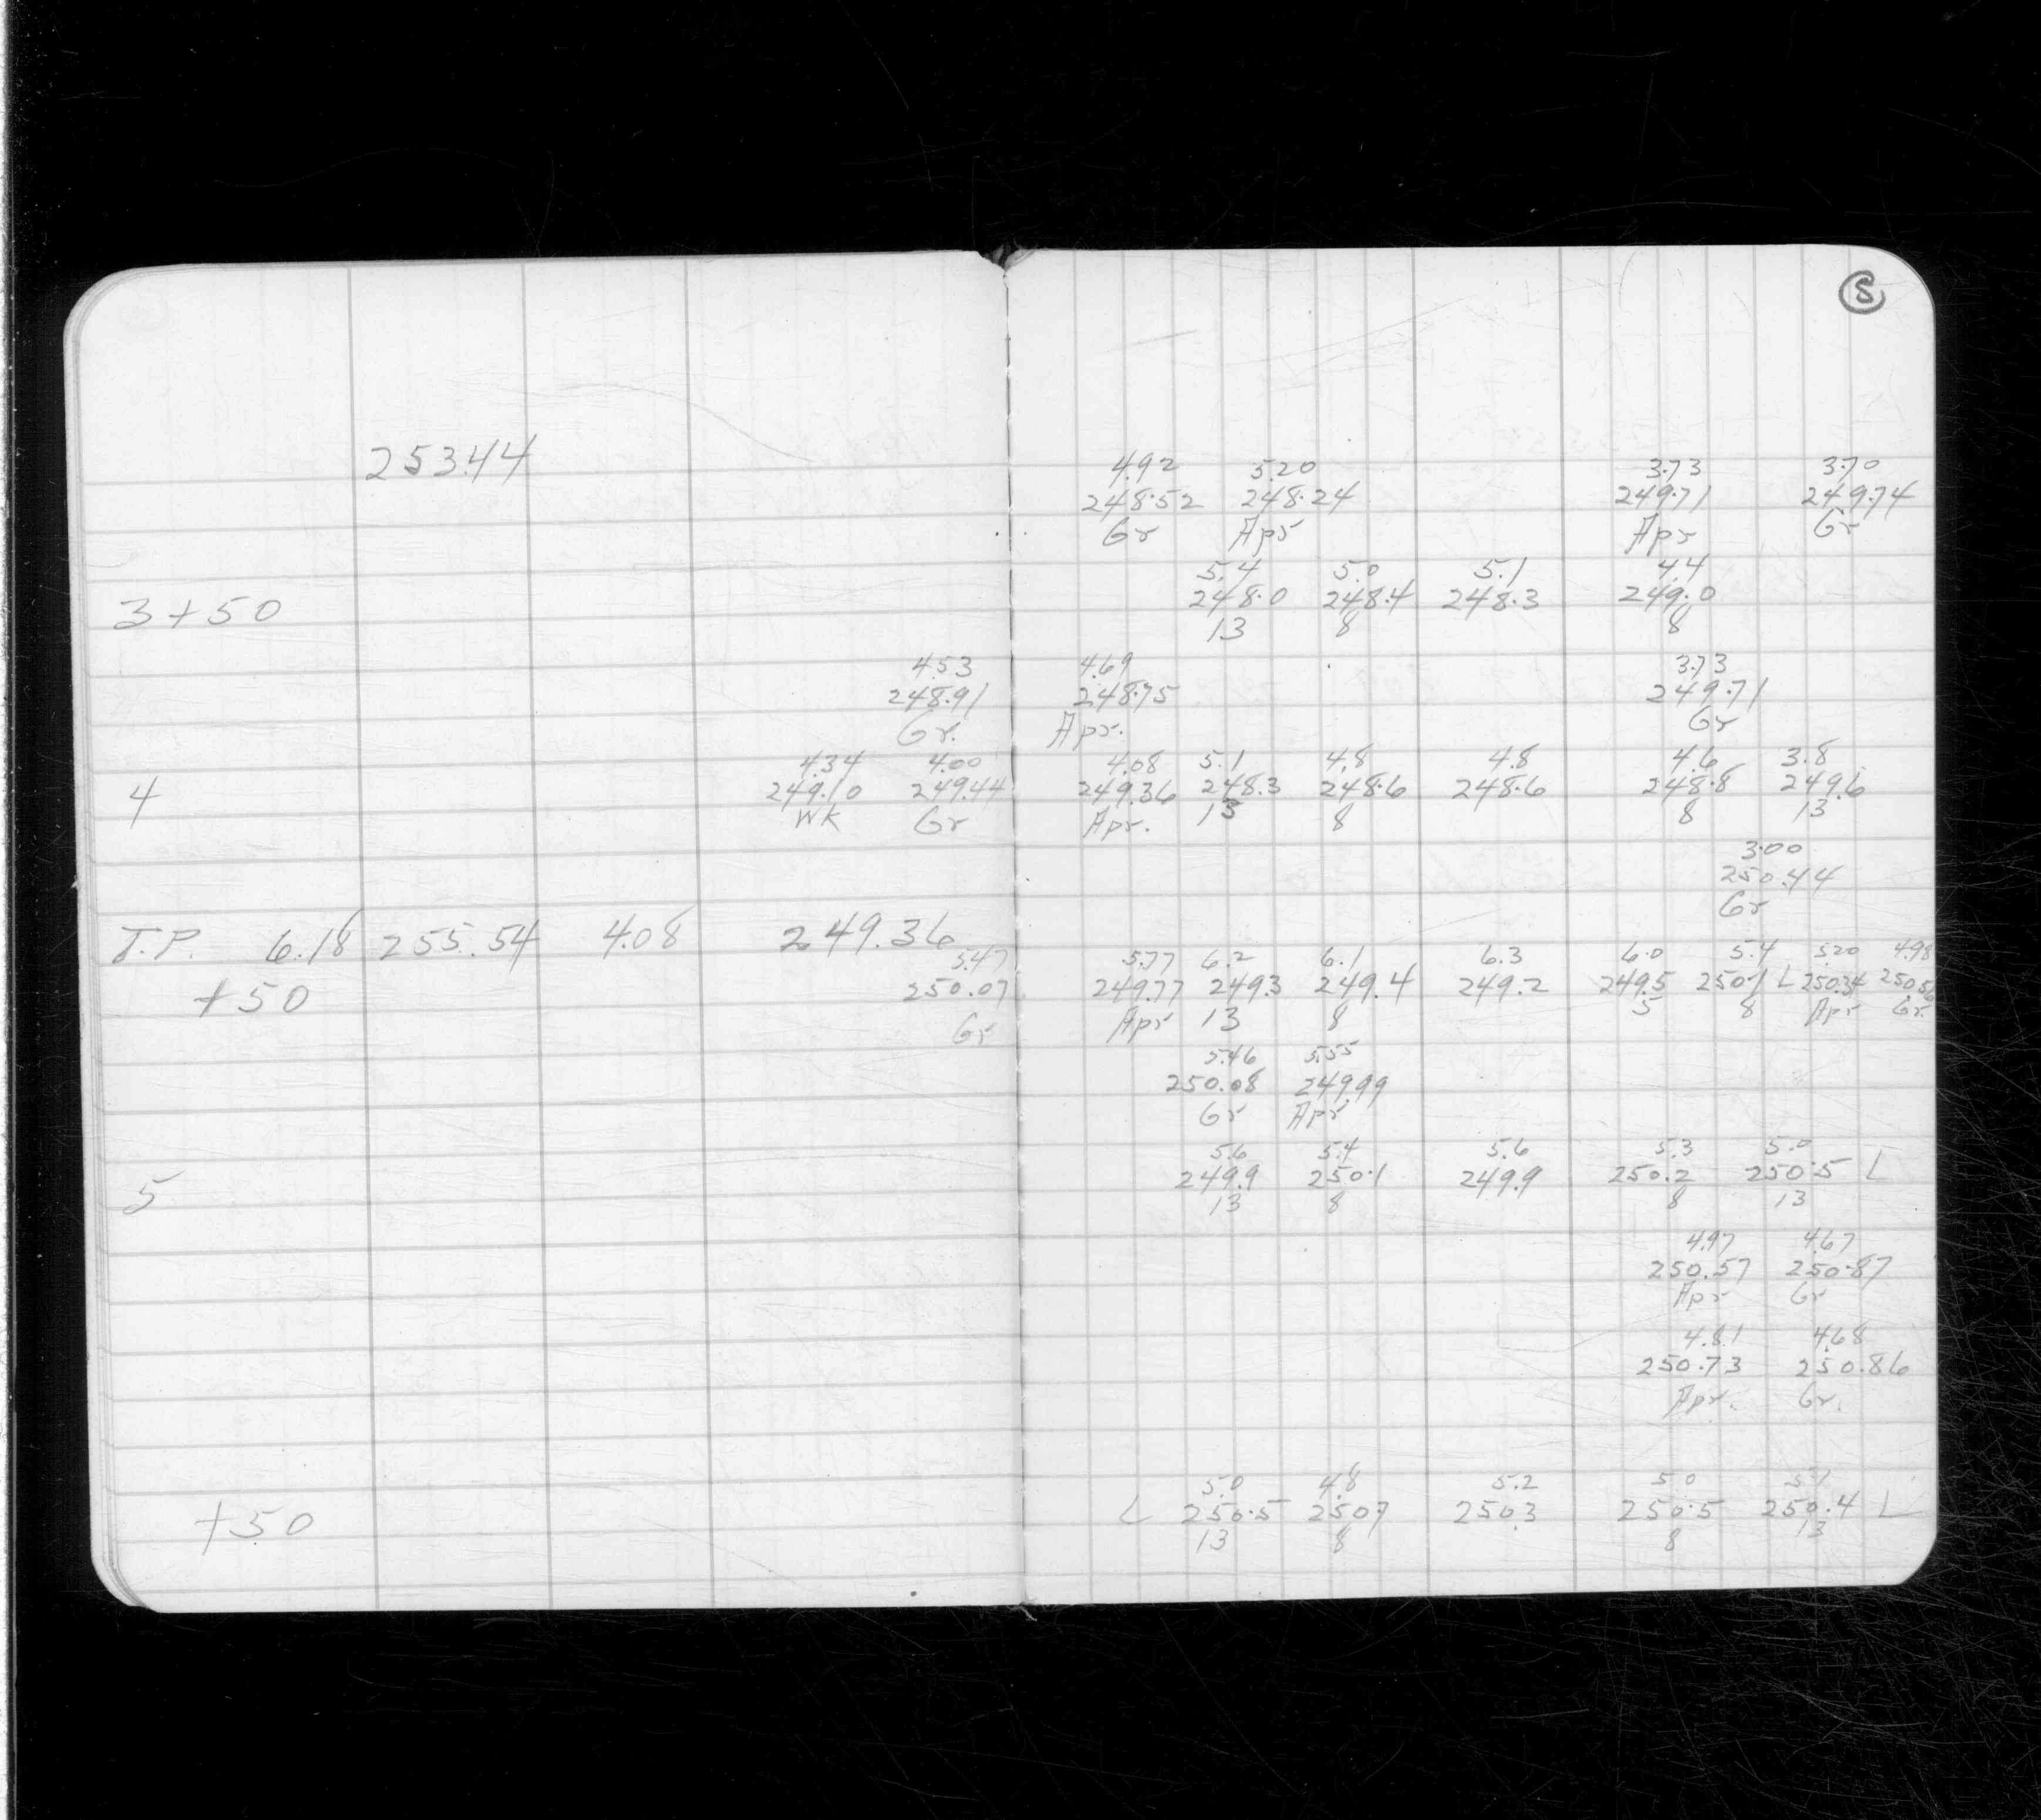 5
253.44
4.92 5.20 3.73 3.70
248.52 248.24 249.71 249.74
Gr Apr Apr Gr
5.4 5.0 5.1 4.4
3+50 248.0 248.4 248.3 249.0
13 8 8
4.53 4.69 3.73
248.91 248.75 249.71
Gr. Apr. Gr
4.34 4.00 4.08 5.1 4.8 4.8 4.6 3.8
4 249.10 249.44 249.36 248.3 248.6 248.6 248.8 249.6
WK Gr Apr. 13 8 8 13
3.00
250.44
Gr
T.P. 6.18 255.54 4.08 249.36
5.47 5.77 6.2 6.1 6.3 6.0 5.4 5.20 4.98
+50 250.07 249.77 249.3 249.4 249.2 249.5 250.1 L 250.34 250.56
Gr Apr 13 8 5 8 Apr Gr.
5.46 5.55
250.08 249.99
Gr Apr
5.6 5.4 5.6 5.3 5.0
5 249.9 250.1 249.9 250.2 250.5 L
13 8 8 13
4.97 4.67
250.57 250.87
Apr Gr
4.81 4.68
250.73 250.86
Apr. Gr.
5.0 4.8 5.2 5.0 5.1
+50 L 250.5 250.7 250.3 250.5 250.4 L
13 8 8 13